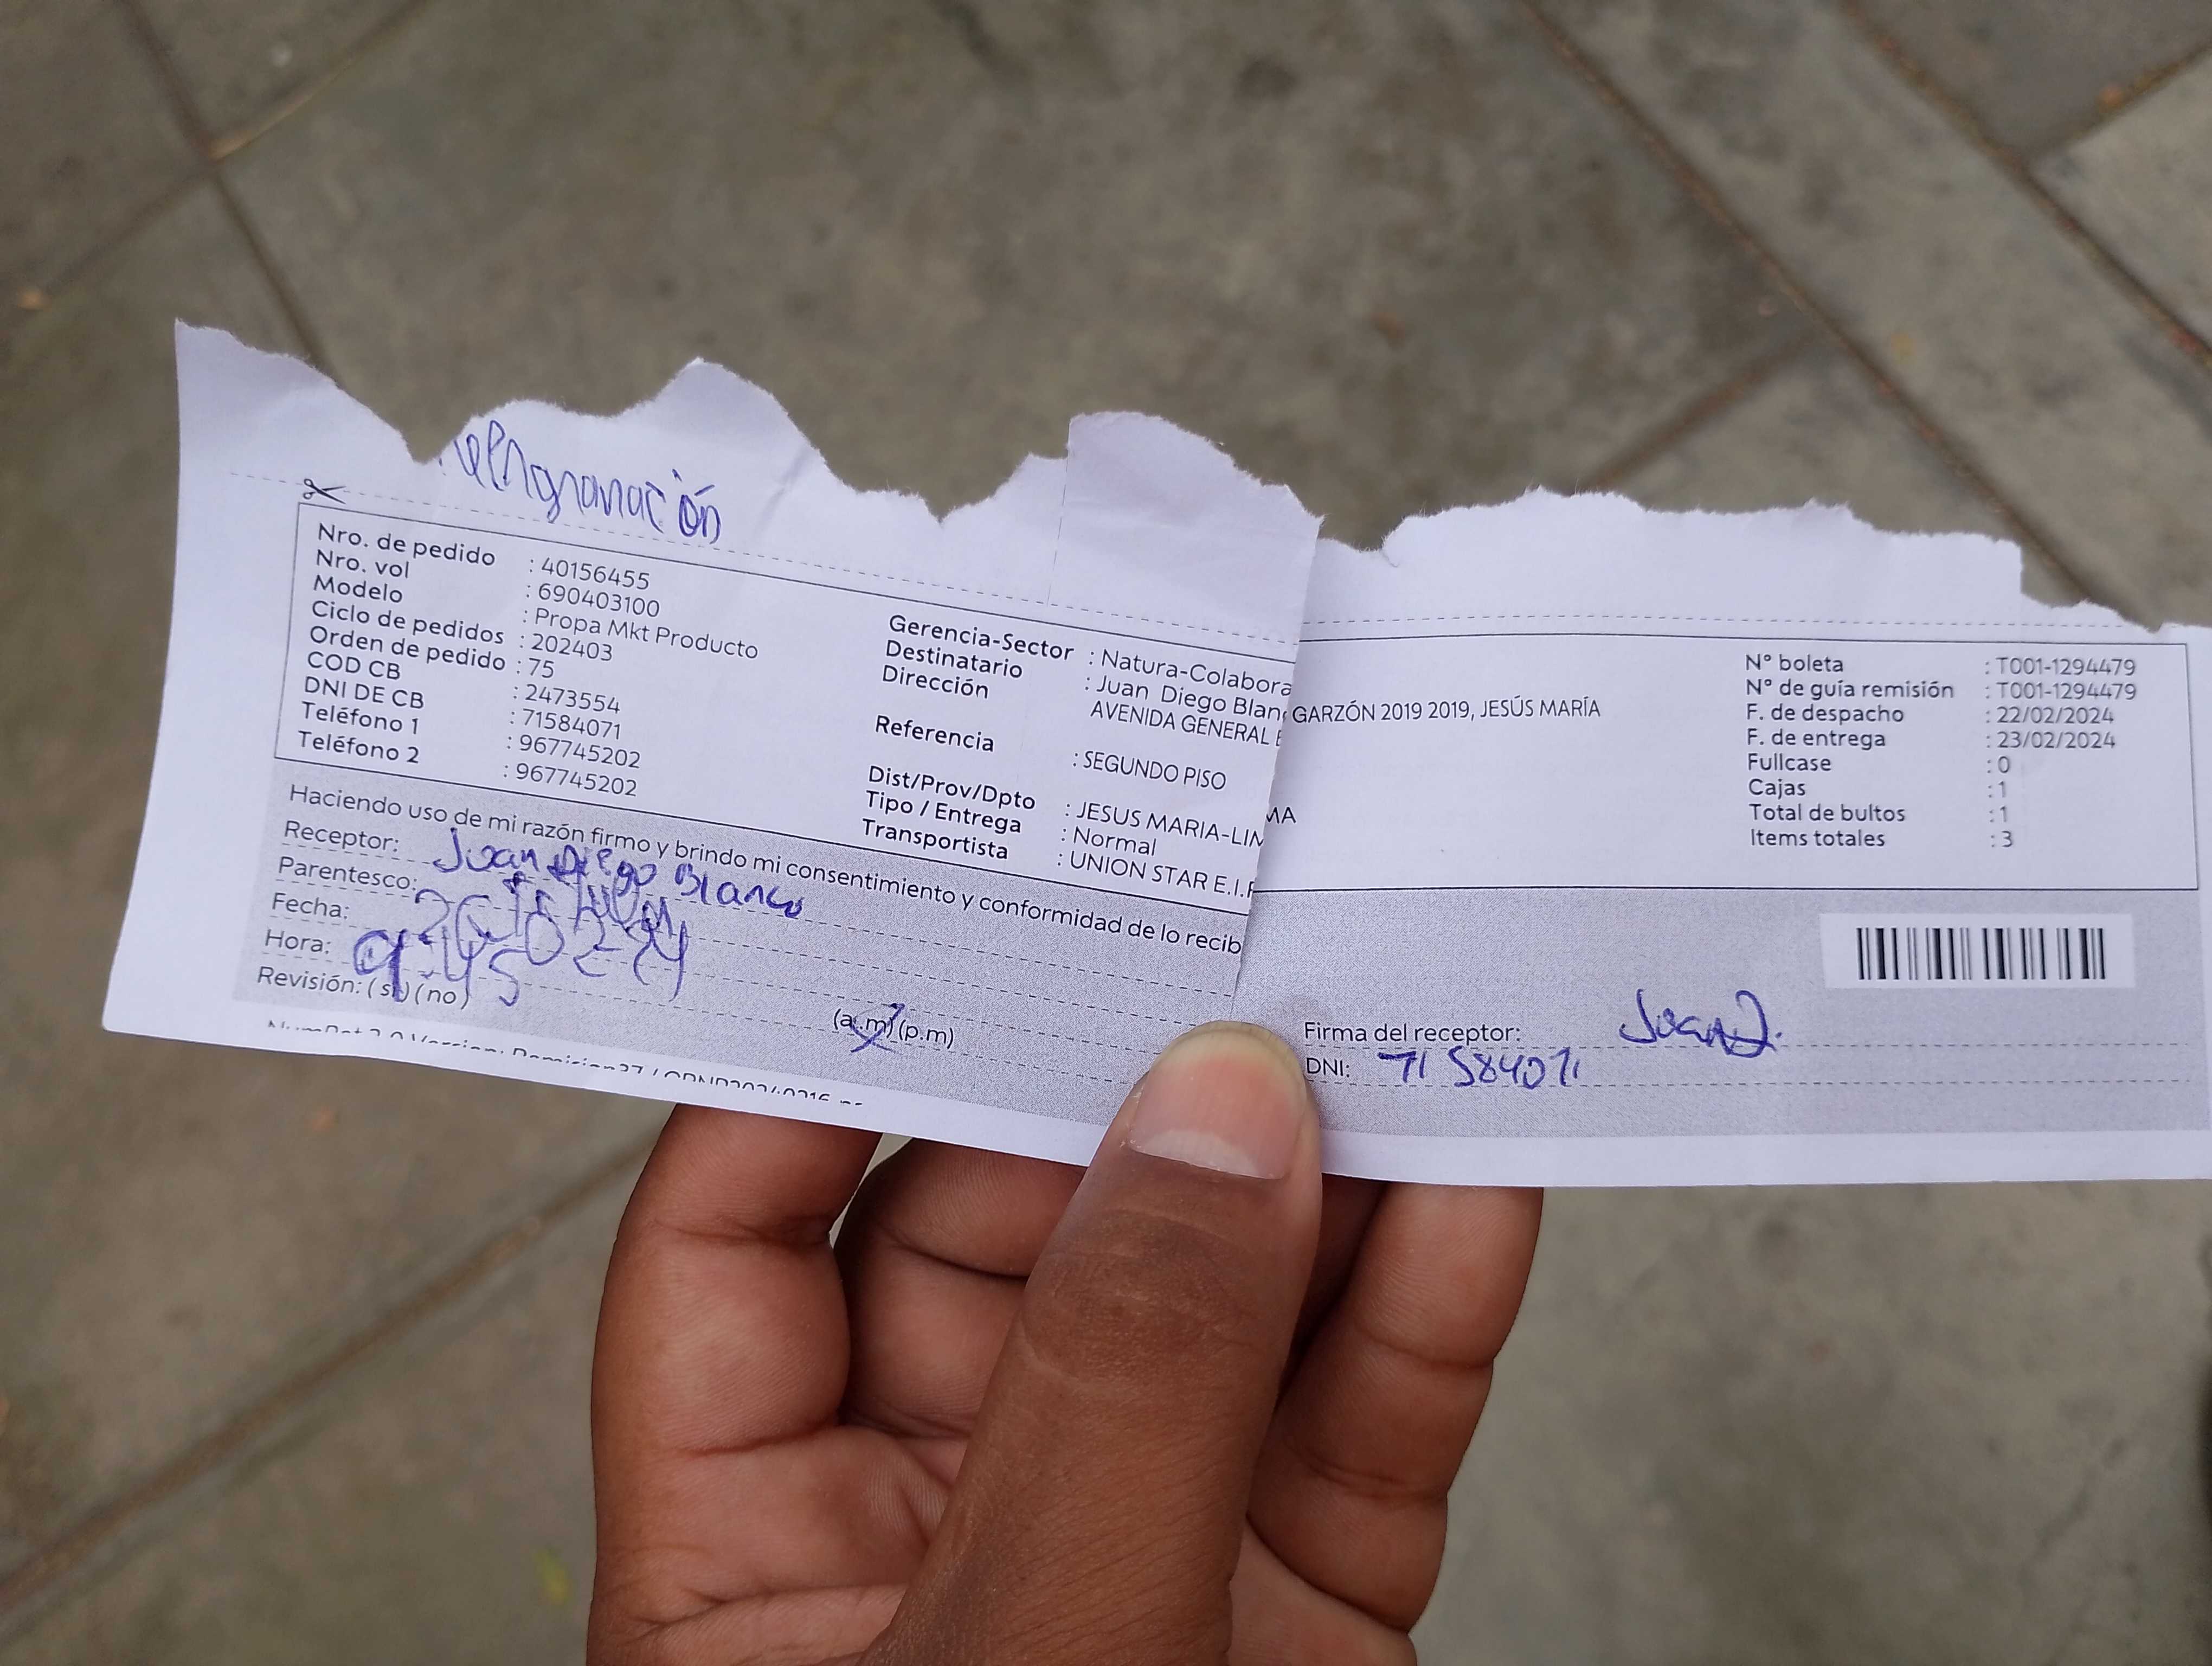 Nro. de pedido : 40156455
Nro. vol : 690403100
Modelo : Propa Mkt Producto
Ciclo de pedidos : 202403
Orden de pedido : 75
COD CB : 2473554
DNI DE CB : 71584071
Teléfono 1 : 967745202
Teléfono 2 : 967745202
Gerencia-Sector : Natura-Colabora
Destinatario : Juan Diego Blan
Dirección
AVENIDA GENERAL GARZÓN 2019 2019, JESÚS MARÍA
Referencia : SEGUNDO PISO
Dist/Prov/Dpto : JESUS MARIA-LIMA
Tipo / Entrega : Normal
Transportista : UNION STAR E.I.
N° boleta : T001-1294479
N° de guía remisión : T001-1294479
F. de despacho : 22/02/2024
F. de entrega : 23/02/2024
Fullcase : 0
Cajas : 1
Total de bultos : 1
Items totales : 3
Haciendo uso de mi razón firmo y brindo mi consentimiento y conformidad de lo recib
Receptor: Juan Diego Blanco
Parentesco:
Fecha:
Hora: 9:45
(a.m) (p.m)
Revisión: (si) (no)
Firma del receptor: Juan D.
DNI: 71584071